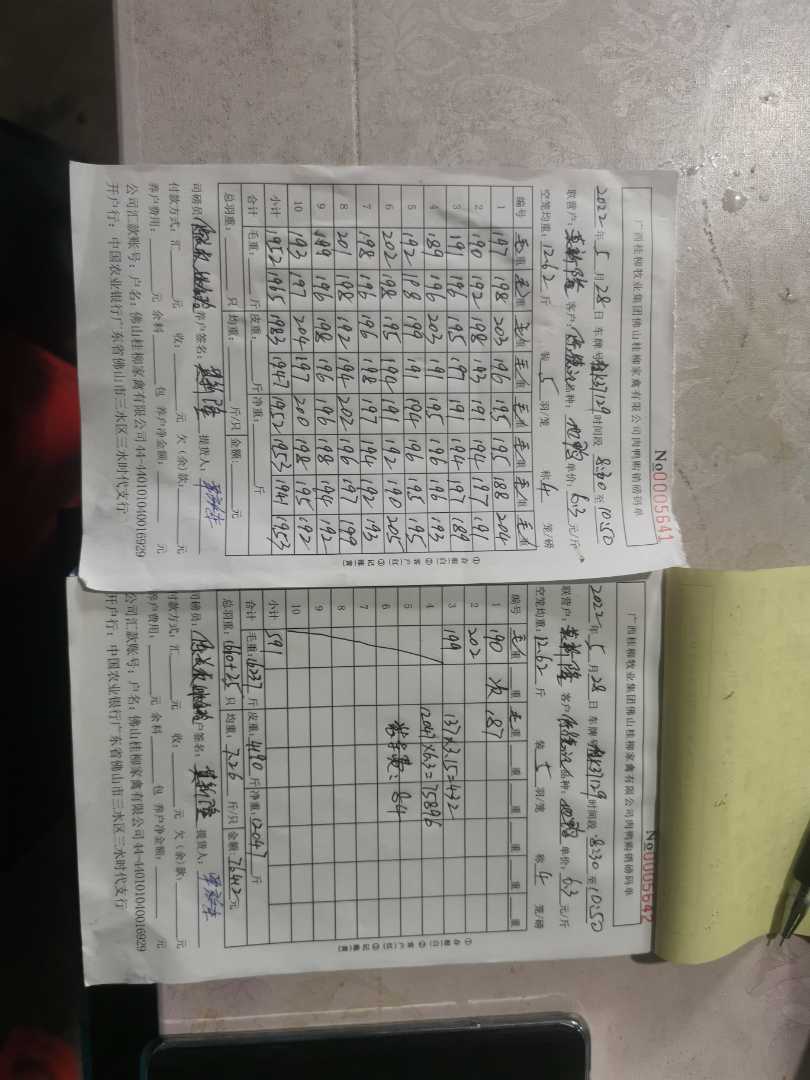 广西桂柳牧业集团佛山桂柳家禽有限公司肉鸭购销磅码单
No00005641
2022年5月28日 车牌号 K37129 时间段 8:30 至 10:50
联营户: 客户: 品种: 单价: 6.3 元/斤
空笼均重: 12.62 斤 装 5 羽/笼 称 4 笼/磅
编号 毛重 毛重 毛重 毛重 毛重 毛重 毛重 毛重
1 197 198 203 196 195 195 188 204
2 190 192 198 193 191 194 197 191
3 191 196 195 197 191 194 197 189
4 189 196 203 191 195 196 196 193
5 192 198 199 191 194 196 195 195
6 202 198 195 194 191 192 190 205
7 198 196 196 198 197 194 192 193
8 201 198 192 194 202 196 197 199
9 199 196 198 196 196 198 194 192
10 193 197 204 197 200 198 195 192
小计 1952 1965 1983 1947 1952 1953 1941 1953
合计 毛重: 斤 皮重: 斤 净重: 斤
总羽重: 只 均重: 斤/只 金额: 元
司磅员: 养户签名: 提货人:
付款方式: 汇 元 收: 元 欠(余)款: 元
养户费用: 元 余料 包 养户净金额: 元
公司汇款账号: 户名: 佛山桂柳家禽有限公司 44-440101040016929
开户行: 中国农业银行广东省佛山市三水区三水时代支行
①存根(白) ②客户(红) ③记账(黄)
广西桂柳牧业集团佛山桂柳家禽有限公司肉鸭购销磅码单
No00005642
2022年5月28日 车牌号 K37129 时间段 8:30 至 10:50
联营户: 客户: 品种: 单价: 6.3 元/斤
空笼均重: 12.62 斤 装 5 羽/笼 称 4 笼/磅
编号 毛重 重 毛重 重 重 重 重 重
1 190 次 187
2 202
3 199 137×3.15=432
4 12047×6.3=75896
5 : 84
6
7
8
9
10
小计 591
合计 毛重: 16237 斤 皮重: 4190 斤 净重: 12047 斤
总羽重: 1660+25 只 均重: 7.26 斤/只 金额: 76412 元
司磅员: 养户签名: 提货人:
付款方式: 汇 元 收: 元 欠(余)款: 元
养户费用: 元 余料 包 养户净金额: 元
公司汇款账号: 户名: 佛山桂柳家禽有限公司 44-440101040016929
开户行: 中国农业银行广东省佛山市三水区三水时代支行
①存根(白) ②客户(红) ③记账(黄)